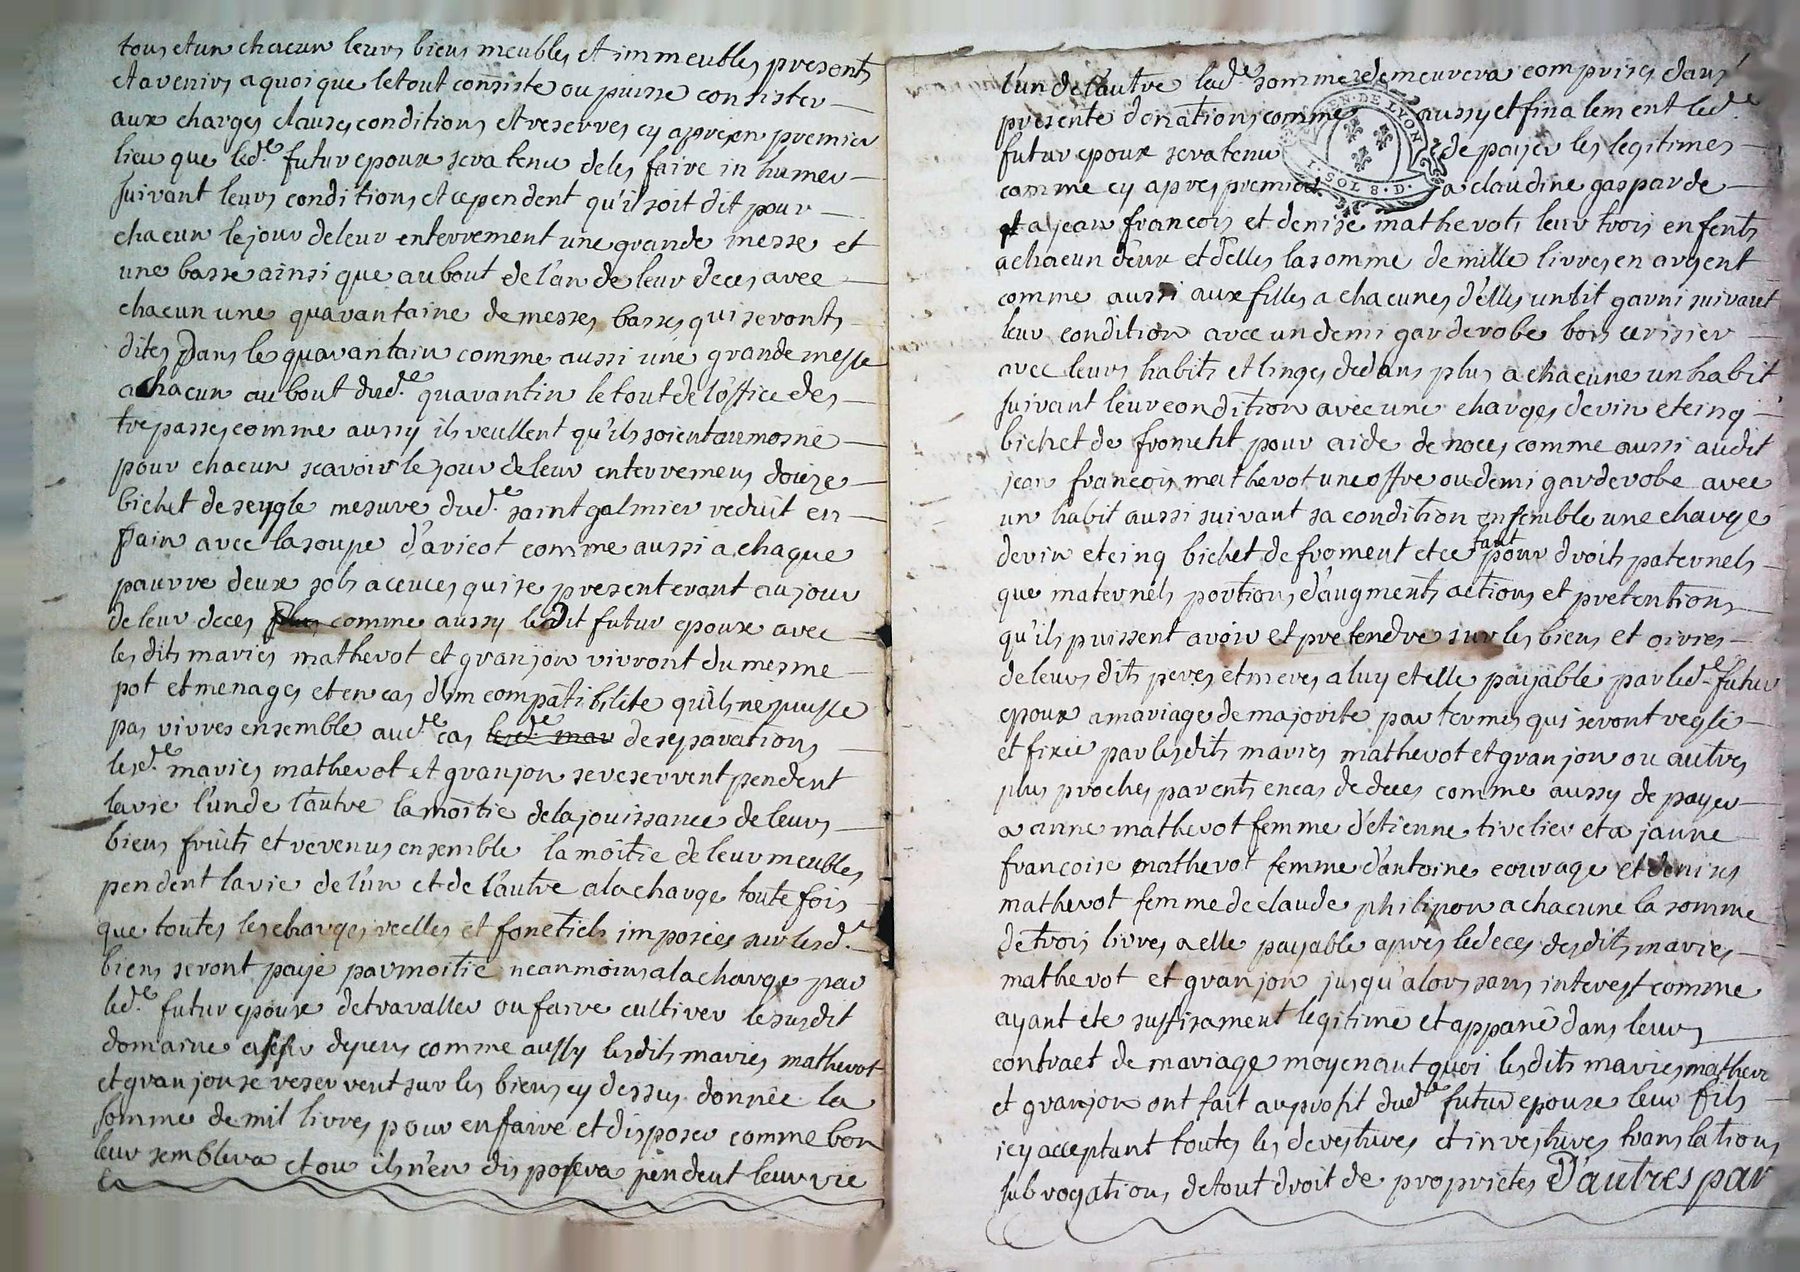 tous et un chacun leurs biens meubles et immeubles presents
et avenirs a quoique le tout consiste ou puisse consister
aux charges clauses conditions et reserves cy apres en premier
lieu que led.e futur epoux sera tenu de les faire inhumer
suivant leurs conditions et cependent qu'il soit dit pour
chacun le jour de leur enterrement une grande messe et
une basse ainsi que au bout de l'an de leur deces avec
chacun une quarantaine de messes basses qui seronts
dites dans le quarantain comme aussi une grande messe
a chacun au bout dud.e quarantin le tout de l'office des
trepasses comme aussy ils veullent qu'ils soient aumosné
pour chacun scavoir le jour de leur enterremens douze
bichet de seygle mesure dud.e saint galmier reduit en
pain avec la soupe d'aricot comme aussi a chaque
pauvre deux sols a ceuces qui se presenteront au jour
de leur deces plus comme aussy ledit futur epoux avec
les dits maries mathevot et granjon vivront du mesme
pot et menages et en cas d'im compatibilite qu'ils ne puisse
pas vivres ensemble aud.e cas lesd.e mar de separations
lesd.e maries mathevot et granjon se reservent pendent
la vie l'un de l'autre la moitie de la jouissance de leurs
biens fruits et revenus ensemble la moitie de leur meubles
pendent la vie de l'un et de l'autre a la charge toute fois
que toutes les charges reelles et fonctiels imposées sur lesd.e
biens seront payé par moitié neanmoins a la charge par
led.e futur epoux de travaller ou faire cultiver le susdit
domaine a ses depens comme aussy les dits maries mathevot
et granjon se reservent sur les biens cy dessus donnée la
somme de mil livres pour en faire et disposer comme bon
leur semblera et ou ils n'en disposera pendent leur vie
l'un de l'autre lad.e somme demeurera comprises dans
presente donations comme aussy et finalement led.e
futur epoux sera tenu de payer les legitimes
comme cy apres premier a claudine gasparde
et a jean francois et denise mathevots leur trois enfents
a chacun d'eux et d'elles la somme de mille livres en argent
comme aussi aux filles a chacunes d'elles un lit garni suivant
leur condition avec un demi garderobe bois cerisier
avec leurs habits et linges dedans plus a chacune un habit
suivant leur condition avec une charges de vin et cinq
bichet de froment pour aide de noces comme aussi audit
jean francois mathevot une offre ou demi garderobe avec
un habit aussi suivant sa condition ensemble une charge
de vin et cinq bichet de froment et ce tant pour droits paternels
que maternels portions d'augments actions et pretentions
qu'ils puissent avoir et pretendre sur les biens et oivres
de leurs dits peres et meres a luy et elle payable par led.e futur
epoux a mariage de majorite par termes qui seront reglé
et fixée par lesdits maries mathevot et granjon ou autres
plus proches parents en cas de deces comme aussy de payer
a anne mathevot femme d'etienne tivelier et a jeanne
francoise mathevot femme d'antoine couvrage et denises
mathevot femme de claude philipon a chacune la somme
de trois livres a elle payable apres le deces desdits maries
mathevot et granjon jusqu'alors sans interest comme
ayant été suffisament legitimé et appané dans leurs
contract de mariage moyenant quoi lesdits maries mathevo
et granjon ont fait au profit dud.e futur epoux leur fils
icy acceptant toutes les devestures et investures translations
subrogations de tout droit de proprietes D'autres par
GEN. DE LYON
1. SOL 8. D.